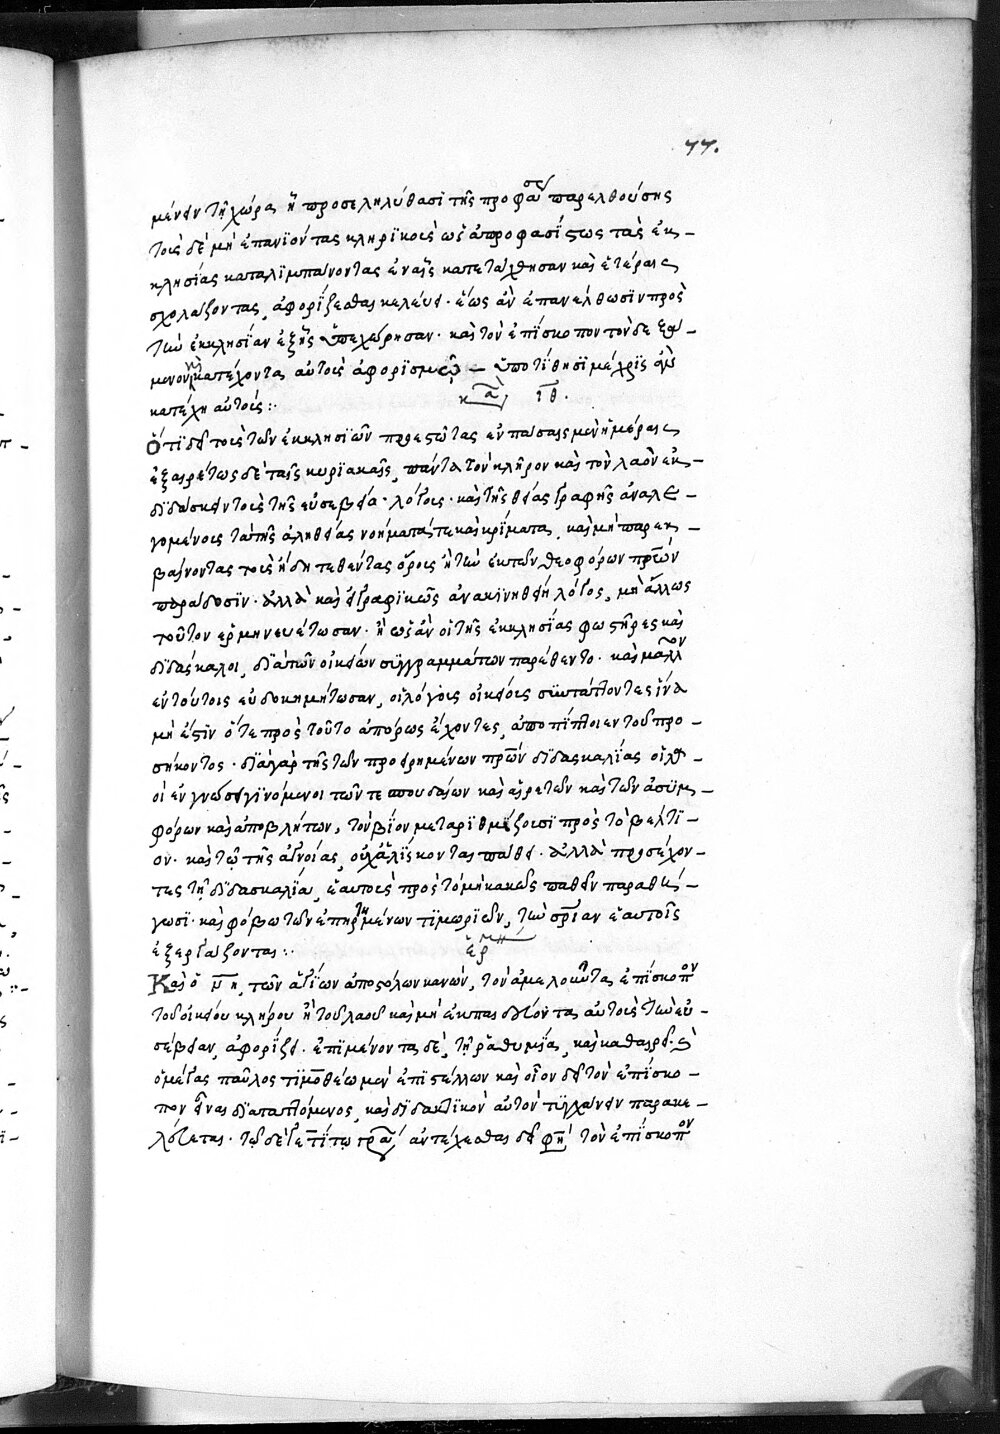 77.
μένειν τῇ χώρᾳ ἢ προσεληλύθασι τῆς προφάσεως παρελθούσης
τοὺς δὲ μὴ ἐπανιόντας κληρικοὺς ὡς ἀπροφασίστως τὰς ἐκ-
κλησίας καταλιμπάνοντας ἐν αἷς κατετάχθησαν καὶ ἑτέραις
σχολάζοντας, ἀφορίζεσθαι κελεύει· ἕως ἂν ἐπανέλθωσιν πρὸς
τὴν ἐκκλησίαν ἐξ ἧς ὑπεχώρησαν· καὶ τὸν ἐπίσκοπον τὸν δεξά-
μενον κατέχοντα αὐτοὺς ἀφορισμῷ - ὑποτίθησι μέχρις ἂν
κατέχῃ αὐτούς :·
κα ιθ.
Ὅτι δεῖ τοὺς τῶν ἐκκλησιῶν προεστῶτας ἐν πάσαις μὲν ἡμέραις
ἐξαιρέτως δὲ ταῖς κυριακαῖς, πάντα τὸν κλῆρον καὶ τὸν λαὸν ἐκ-
διδάσκειν τοὺς τῆς εὐσεβείας λόγους· καὶ τῆς θείας γραφῆς ἀναλε-
γομένους τὰ τῆς ἀληθείας νοήματά τε καὶ κρίματα, καὶ μὴ παρεκ-
βαίνοντας τοὺς ἤδη τεθέντας ὅρους ἢ τὴν ἐκ τῶν θεοφόρων πρων
παράδοσιν· ἀλλὰ καὶ εἰ γραφικῶς ἀνακινηθείη λόγος, μὴ ἄλλως
τοῦτον ἑρμηνευέτωσαν· ἢ ὡς ἂν οἱ τῆς ἐκκλησίας φωστῆρες καὶ
διδάσκαλοι, διὰ τῶν οἰκείων συγγραμμάτων παρέθεντο· καὶ μᾶλλον
ἐν τούτοις εὐδοκιμήτωσαν, οἱ λόγους οἰκείους συντάττοντες ἵνα
μὴ ἔστιν ὅτε πρὸς τοῦτο ἀπόρως ἔχοντες, ἀποπίπτοιεν τοῦ προ-
σήκοντος· διὰ γὰρ τῆς τῶν προειρημένων πρων διδασκαλίας οἱ λα-
οὶ ἐν γνώσει γινόμενοι τῶν τε σπουδαίων καὶ αἱρετῶν καὶ τῶν ἀσυμ-
φόρων καὶ ἀποβλήτων, τὸν βίον μεταριθμίζουσι πρὸς τὸ βέλτι-
ον· καὶ τῷ τῆς ἀγνοίας, οὐχ ἁλίσκονται πάθει· ἀλλὰ προσέχον-
τες τῇ διδασκαλίᾳ, ἑαυτοὺς πρὸς τὸ μὴ κακῶς παθεῖν παραθή-
γωσι· καὶ φόβῳ τῶν ἐπηρτημένων τιμωριῶν, τὴν σριαν ἑαυτοῖς
ἐξεργάζονται :·
ἑρμη
Καὶ ὁ νη, τῶν ἁγίων ἀποστόλων κανών, τὸν ἀμελοῦντα ἐπίσκοπον
τοῦ οἰκείου κλήρου ἢ τοῦ λαοῦ καὶ μὴ ἐκπαιδεύοντα αὐτοὺς τὴν εὐ-
σέβειαν, ἀφορίζει· ἐπιμένοντα δὲ, τῇ ῥαθυμίᾳ, καὶ καθαιρεῖ· καὶ
ὁ μέγας παῦλος τιμοθέῳ μὲν ἐπιστέλλων καὶ οἷον δεῖ τὸν ἐπίσκο-
πον εἶναι διαταττόμενος, καὶ διδακτικὸν αὐτὸν τυγχάνειν παρακε-
λεύεται· τῷ δέ γε τίτῳ γρα ἀντέχεσθαι δεῖ φη τὸν ἐπίσκοπον